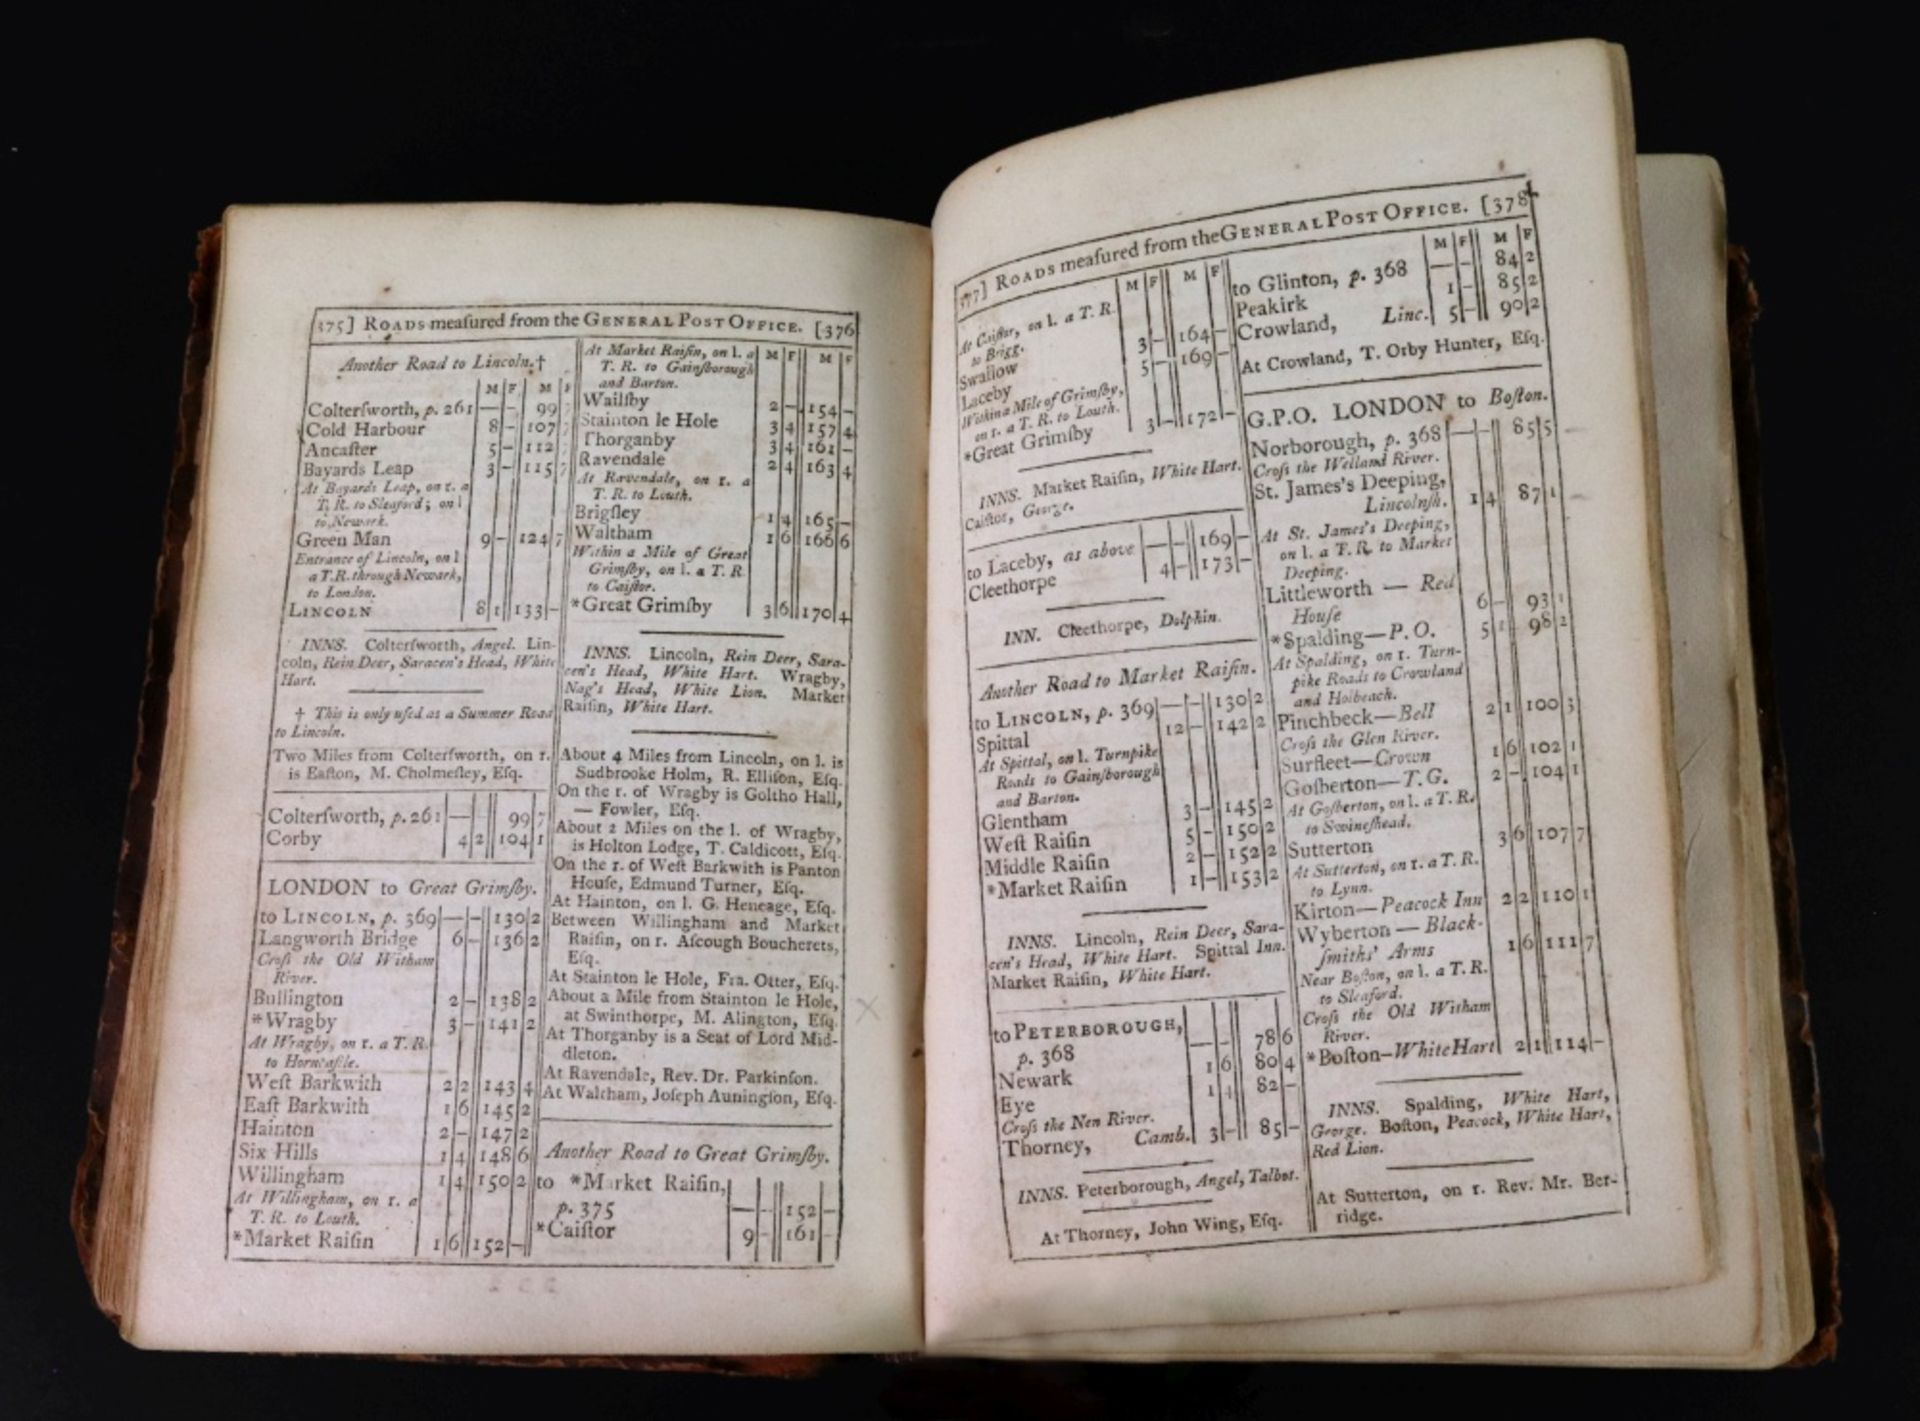 375] ROADS meaſured from the GENERAL POST OFFICE. [376
Another Road to Lincoln.†
M F M F
Colterſworth, p. 261 — - 99 7
Cold Harbour 8 - 107 7
Ancaſter 5 - 112 7
Bayards Leap 3 - 115 7
At Bayards Leap, on r. a
T. R. to Sleaford; on l
to Newark.
Green Man 9 - 124 7
Entrance of Lincoln, on l
a T.R. through Newark,
to London.
LINCOLN 8 1 133 -
INNS. Colterſworth, Angel. Lin-
coln, Rein Deer, Saracen's Head, White
Hart.
† This is only uſed as a Summer Road
to Lincoln.
Two Miles from Colterſworth, on r.
is Eaſton, M. Cholmeſley, Eſq.
Colterſworth, p. 261 — 99 7
Corby 4 2 104 1
LONDON to Great Grimſby.
to LINCOLN, p. 369 — - 130 2
Langworth Bridge 6 - 136 2
Croſs the Old Witham
River.
Bullington 2 - 138 2
*Wragby 3 - 141 2
At Wragby, on r. a T. R.
to Horncaſtle.
Weſt Barkwith 2 2 143 4
Eaſt Barkwith 1 6 145 2
Hainton 2 - 147 2
Six Hills 1 4 148 6
Willingham 1 4 150 2
At Willingham, on r. a
T. R. to Louth.
*Market Raiſin 1 6 152 -
At Market Raiſin, on l. a M F M F
T. R. to Gainſborough
and Barton.
Wailſby 2 - 154 -
Stainton le Hole 3 4 157 4
Thorganby 3 4 161 -
Ravendale 2 4 163 4
At Ravendale, on r. a
T. R. to Louth.
Brigſley 1 4 165 -
Waltham 1 6 166 6
Within a Mile of Great
Grimſby, on l. a T. R.
to Caiſtor.
*Great Grimſby 3 6 170 4
INNS. Lincoln, Rein Deer, Sara-
cen's Head, White Hart. Wragby,
Nag's Head, White Lion. Market
Raiſin, White Hart.
About 4 Miles from Lincoln, on l. is
Sudbrooke Holm, R. Elliſon, Eſq.
On the r. of Wragby is Goltho Hall,
— Fowler, Eſq.
About 2 Miles on the l. of Wragby,
is Holton Lodge, T. Caldicott, Eſq.
On the r. of Weſt Barkwith is Panton
Houſe, Edmund Turner, Eſq.
At Hainton, on l. G. Heneage, Eſq.
Between Willingham and Market
Raiſin, on r. Aſcough Boucherets,
Eſq.
At Stainton le Hole, Fra. Otter, Eſq.
About a Mile from Stainton le Hole,
at Swinthorpe, M. Alington, Eſq.
At Thorganby is a Seat of Lord Mid-
dleton.
At Ravendale, Rev. Dr. Parkinſon.
At Waltham, Joſeph Auningſon, Eſq.
Another Road to Great Grimſby.
to *Market Raiſin,
p. 375 — - 152 -
*Caiſtor 9 - 161 -
377] ROADS meaſured from the GENERAL POST OFFICE. [378
M F M F
At Caiſtor, on l. a T. R.
to Brigg.
Swallow 3 - 164 -
Laceby 5 - 169 -
Within a Mile of Grimſby,
on r. a T. R. to Louth.
*Great Grimſby 3 - 172 -
INNS. Market Raiſin, White Hart.
Caiſtor, George.
to Laceby, as above — - 169 -
Cleethorpe 4 - 173 -
INN. Cleethorpe, Dolphin.
Another Road to Market Raiſin.
to LINCOLN, p. 369 — - 130 2
Spittal 12 - 142 2
At Spittal, on l. Turnpike
Roads to Gainſborough
and Barton.
Glentham 3 - 145 2
Weſt Raiſin 5 - 150 2
Middle Raiſin 2 - 152 2
*Market Raiſin 1 - 153 2
INNS. Lincoln, Rein Deer, Sara-
cen's Head, White Hart. Spittal Inn.
Market Raiſin, White Hart.
to PETERBOROUGH,
p. 368 — - 78 6
Newark 1 6 80 4
Eye 1 4 82 -
Croſs the Nen River.
Thorney, Camb. 3 - 85 -
INNS. Peterborough, Angel, Talbot.
At Thorney, John Wing, Eſq.
M F M F
to Glinton, p. 368 — - 84 2
Peakirk 1 - 85 2
Crowland, Linc. 5 - 90 2
At Crowland, T. Orby Hunter, Eſq.
G.P.O. LONDON to Boſton.
Norborough, p. 368 — - 85 5
Croſs the Welland River.
St. James's Deeping,
Lincolnſh. 1 4 87 1
At St. James's Deeping,
on l. a T. R. to Market
Deeping.
Littleworth — Red
Houſe 6 - 93 1
*Spalding—P.O. 5 1 98 2
At Spalding, on r. Turn-
pike Roads to Crowland
and Holbeach.
Pinchbeck—Bell 2 1 100 3
Croſs the Glen River.
Surfleet—Crown 1 6 102 1
Goſberton—T.G. 2 - 104 1
At Goſberton, on l. a T. R.
to Swineſhead.
Sutterton 3 6 107 7
At Sutterton, on r. a T. R.
to Lynn.
Kirton—Peacock Inn 2 2 110 1
Wyberton — Black-
ſmiths' Arms 1 6 111 7
Near Boſton, on l. a T. R.
to Sleaford.
Croſs the Old Witham
River.
*Boſton—White Hart 2 1 114 -
INNS. Spalding, White Hart,
George. Boſton, Peacock, White Hart,
Red Lion.
At Sutterton, on r. Rev. Mr. Ber-
ridge.